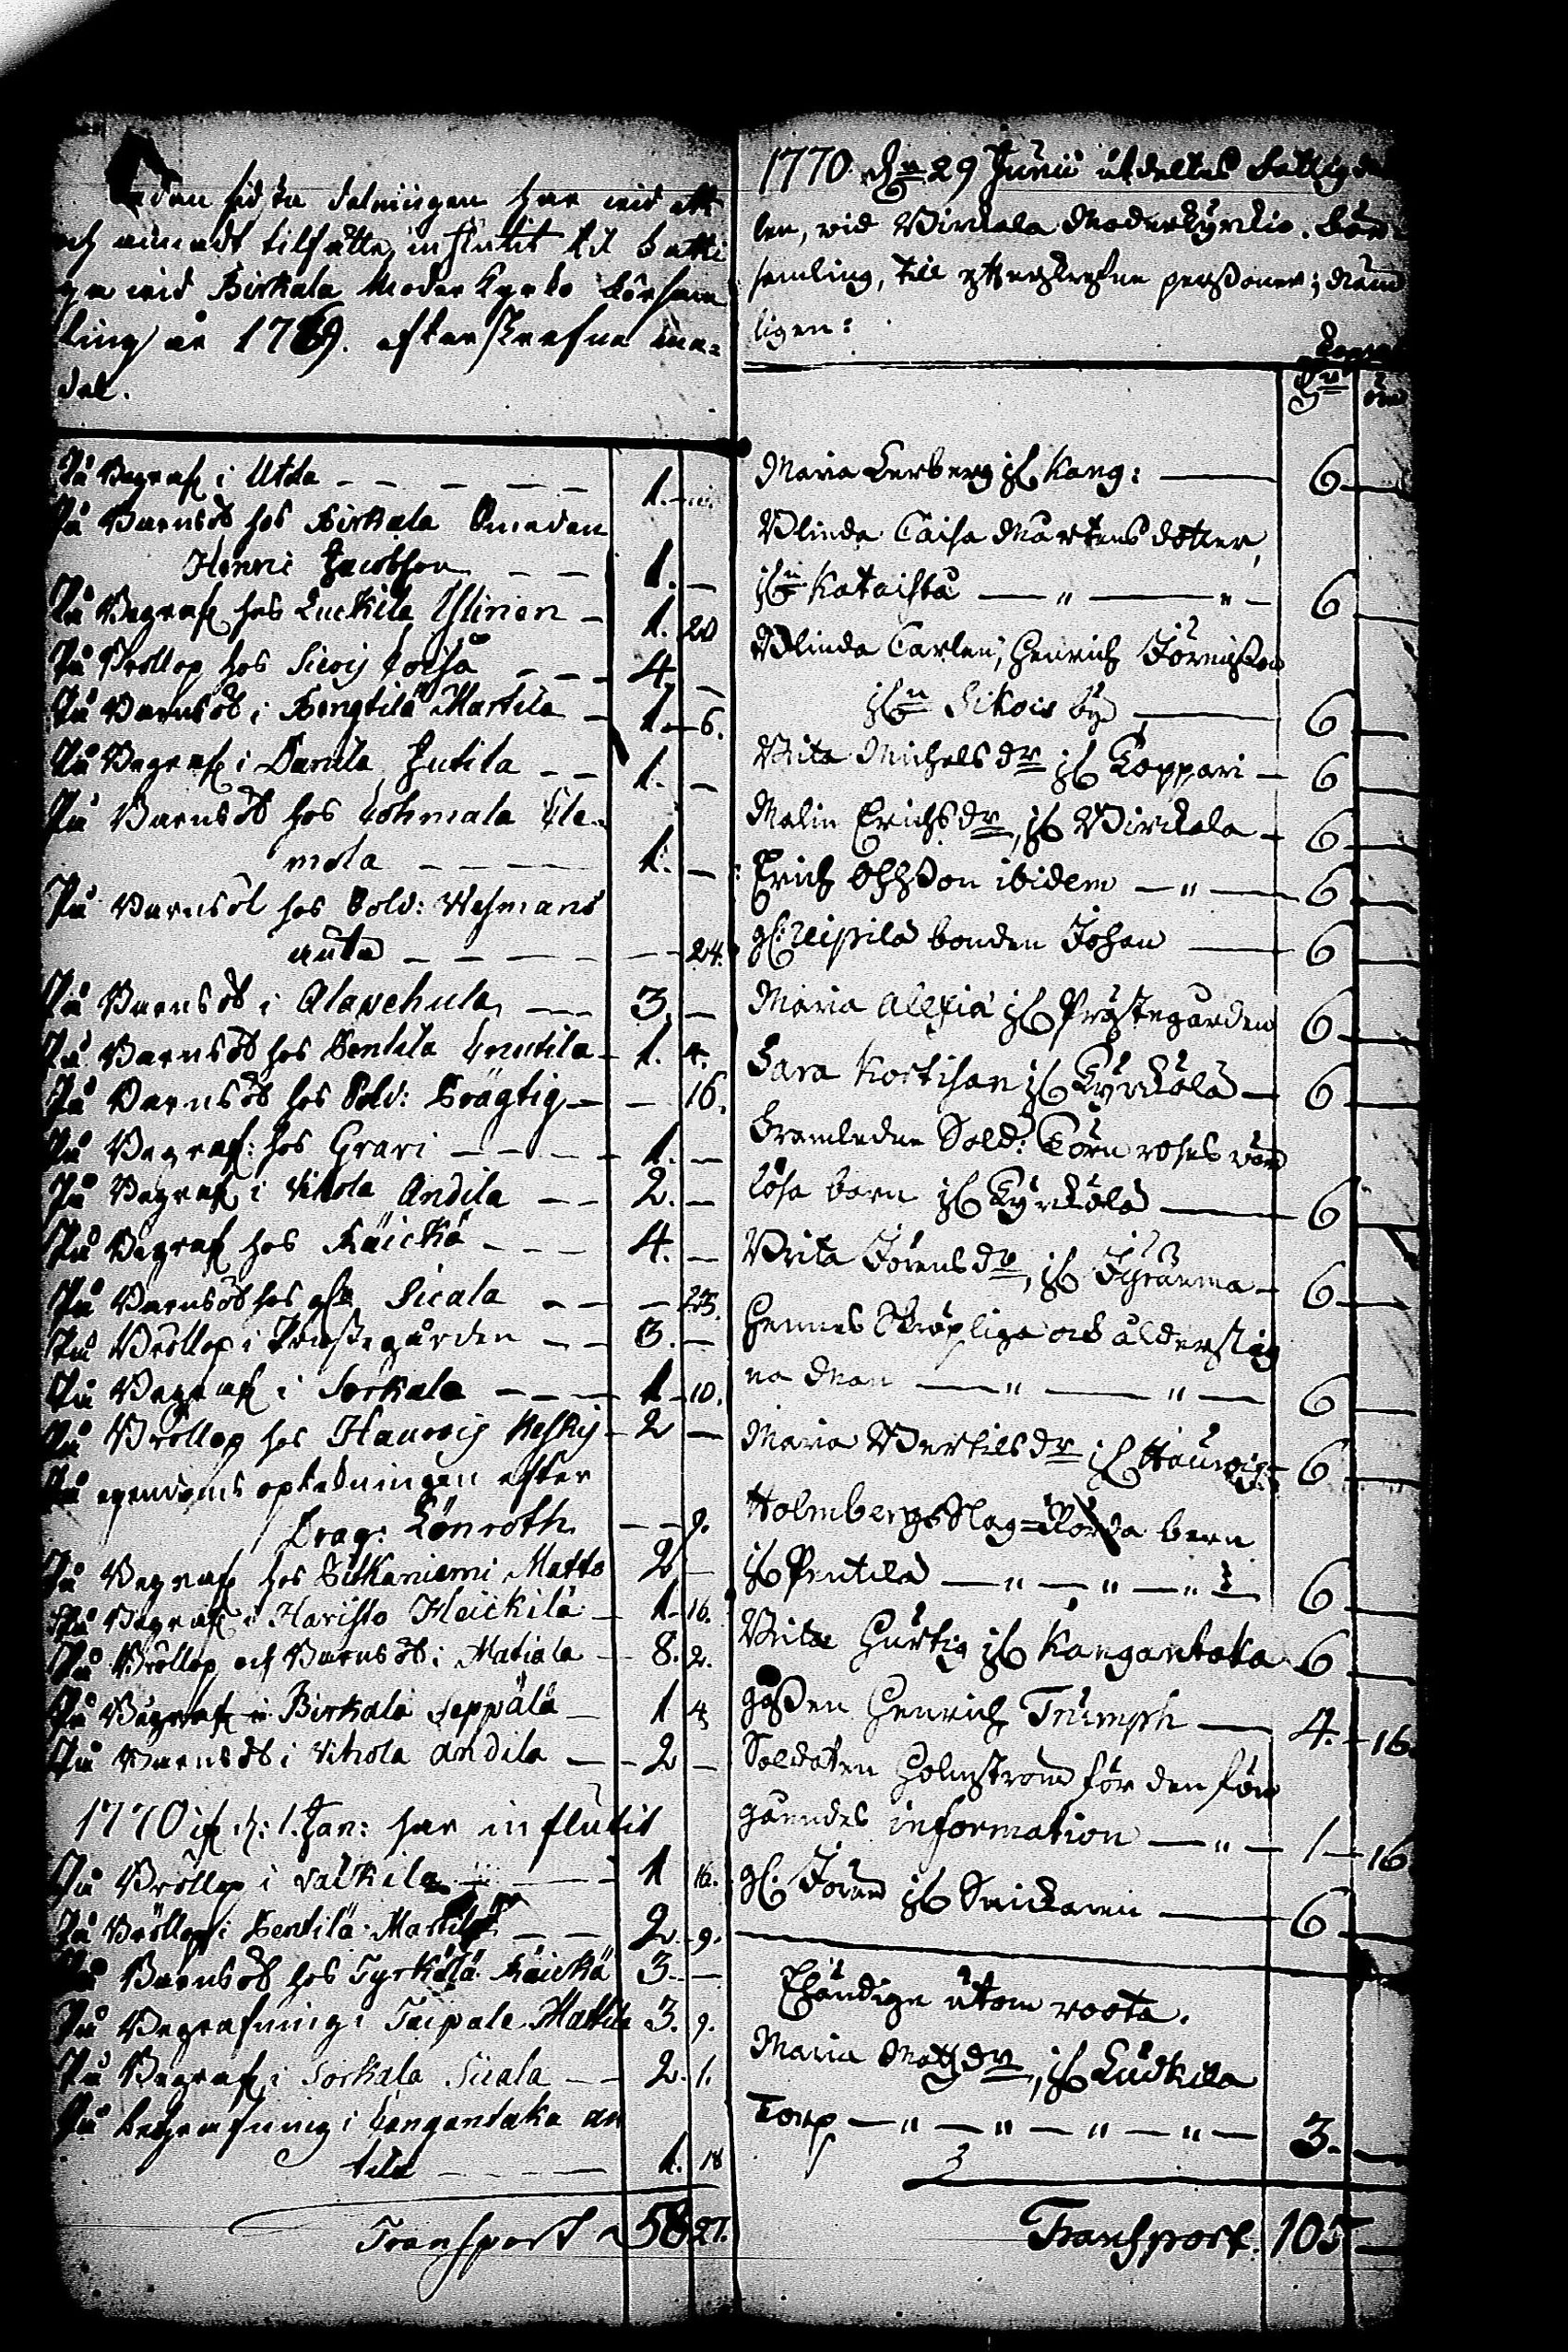 Sedan sidsta delningen har vid ett
och annadt tilfälle influtit til Fatti
ga vid Birkala Moder Kyrko Försam
ling år 1769. efterskrefna me-
del.
På Begraf: i Utala - - - - - 1. -
På Barnsöl hos Birkala Smeden
Henric Jacobsson - - 1. -
På Begraf: hos Luckila Yllinen - 1. 20
På Bröllop hos Sicoij - - - 4. -
På Barnsöl i Bengtilä Martila - 1. 6.
På Begraf: i Danila Jutila - - 1. -
På Barnsöl hos Lohmala Cle-
mola - - - - - 1. -
På Barnsöl hos Sold: Wesmans
- - - - - - 24.
På Barnsöl i Alavehula - - 3. -
På Barnsöl hos Pentila Knutila - 1. 4.
På Barnsöl hos Sold: Brägtig - - 16.
På Begraf: hos Grari - - - - 1. -
På Begraf: i Vihola Andila - - 2. -
På Begraf: hos Räickä - - - 4. -
På Barnsöl hos Sicala - - - 23.
På Bröllop i Prästegården - - 3. -
På Begraf: i Sorkala - - - 1. 10.
På Bröllop hos Hauvoij Kesky - 2 -
På egendoms opteckningen efter
Drag: Lönroth - - 9.
På Begraf: hos Pitkaniemi Matts 2 -
På Begraf: i Haristo Heickilä - 1. 16.
På Bröllop och Barnsöl i Matiala - 8. 2.
På Begraf: i Birkala Seppälä - 1 4
På Barnsöl i Vihola andila - - 2 -
1770 if: d: 1. Jan: har influtit
På Bröllop i Valkila - - 1 16.
På Bröllop i Pentilä Martila - - 2. 9.
På Barnsöl hos Tyrkölä Räickä 3. -
På Begrafning i Taipale Mattila 3. 9.
På Begraf: i Sorkala Sicala - - 2. 1.
På Begrafning i Kangantaka an
tila - - - - 1. 18
Transport 58 27.
1770 den 29 Junii utdeltes Fattigde
len, vid Birckala Moderkyrkio. För
samling, till efterskrefne personer; näm
ligen:
Maria Lerberg if: Kang: - 6 -
Blinda Caisa Mårtens dotter,
ifrn Kataistå - " - " - 6 -
Blinda Carlen, Henrich Jörensson
ifrn Sikois by - 6 -
Brita Michels dr if: Koppari - 6 -
Malin Erichs dr, if: Birckala - 6 -
Erich Ohlsson ibidem - " - 6 -
gl: bonden Johan - 6 -
Maria Alexia if: Prästegården 6 -
Sara Kortisar if: Kyrckölä - 6 -
Framledne Sold: Törn roses värn
lösa barn if: Kyrckölä - 6 -
Brita Jörens dr, if: - 6 -
Hennes Skröpliga och ålderstig
na Man - " - " - 6 -
Maria Bertils dr if: Hauvoij: 6 -
Holmbergs Slag-rörda barn
if: Pentilä - " - " - " - 6 -
Brita Hurtig if: Kangantaka 6 -
gossen Henrich Triumph - 4. 16.
Soldaten Holmstrom för den före
gåendes information - " - 1 - 16
gl: Jören if: Snickaren - 6 -
Eländige utom roota.
Maria Matsdr, if: Luckila
Torp - " - " - " - " - 3. -
Transport. 105 -